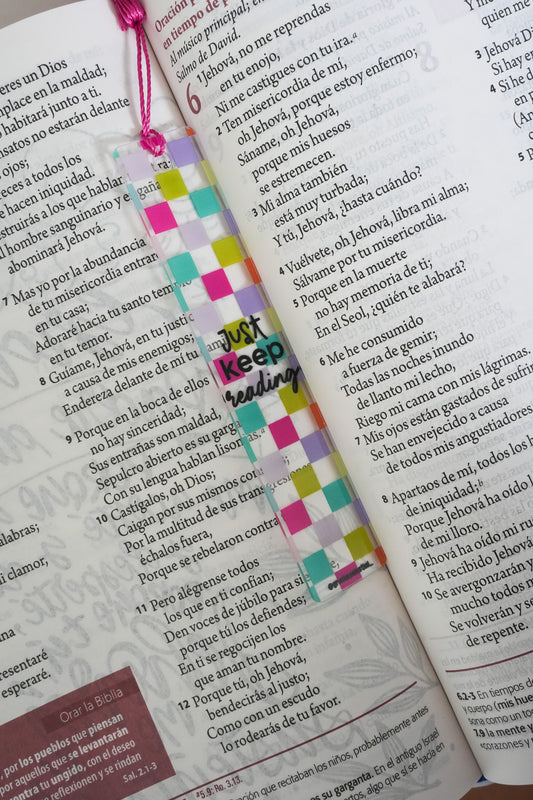 eres un Dios
place en la maldad;
habitará junto a ti.
nsatos no estarán delante
ojos;
eces a todos los
hacen iniquidad.
struirás a los que hablan
l hombre sanguinario y engaña
abominará Jehová.
7 Mas yo por la abundancia
de tu misericordia entrar
en tu casa;
Adoraré hacia tu santo temp
en tu temor.
8 Guíame, Jehová, en tu justi
a causa de mis enemigos;
Endereza delante de mí tu
9 Porque en la boca de ellos
no hay sinceridad;
Sus entrañas son maldad,
Sepulcro abierto es su garga
Con su lengua hablan lisonj
10 Castígalos, oh Dios;
Caigan por sus mismos co
Por la multitud de sus transgresiones
échalos fuera,
Porque se rebelaron contra
11 Pero alégrense todos
los que en ti confían;
Den voces de júbilo para si
porque tú los defiendes;
En ti se regocijen los
que aman tu nombre.
12 Porque tú, oh Jehová,
bendecirás al justo;
Como con un escudo
lo rodearás de tu favor.
alabras;
i clamor,
ana
resentaré
esperaré.
Orar la Biblia
, por los pueblos que piensan
por aquellos que se levantarán
contra tu ungido, con el deseo
reflexionen y se rindan
Sal. 2.1-3
a5.9: Ro. 3.13.
just
keep
reading
Oración p
en tiempo de p
Al músico principal; en
Salmo de David.
6 1 Jehová, no me reprendas
en tu enojo,
Ni me castigues con tu ira.a
2 Ten misericordia de mí,
oh Jehová, porque estoy enfermo;
Sáname, oh Jehová,
porque mis huesos
se estremecen.
3 Mi alma también
está muy turbada;
Y tú, Jehová, ¿hasta cuándo?
4 Vuélvete, oh Jehová, libra mi alma;
Sálvame por tu misericordia.
5 Porque en la muerte
no hay memoria de ti;
En el Seol, ¿quién te alabará?
6 Me he consumido
a fuerza de gemir;
Todas las noches inundo
de llanto mi lecho,
Riego mi cama con mis lágrimas.
7 Mis ojos están gastados de sufri
Se han envejecido a causa
de todos mis angustiadores
8 Apartaos de mí, todos los h
de iniquidad;b
Porque Jehová ha oído
de mi lloro.
9 Jehová ha oído mi ru
Ha recibido Jehová m
10 Se avergonzarán y
mucho todos m
Se volverán y se
de repente.
Y me
quien me
3 Jehová Di
Si hay en
4 Si he d
en p
(An
S
5 p
6.2-3 En tiempos de
y cuerpo (mis hue
sona como un to
7.9 la mente y
corazones y
ación que recitaban los niños, probablemente antes
es su garganta. En el antiguo Israel
tas, algo que sí se hacía en